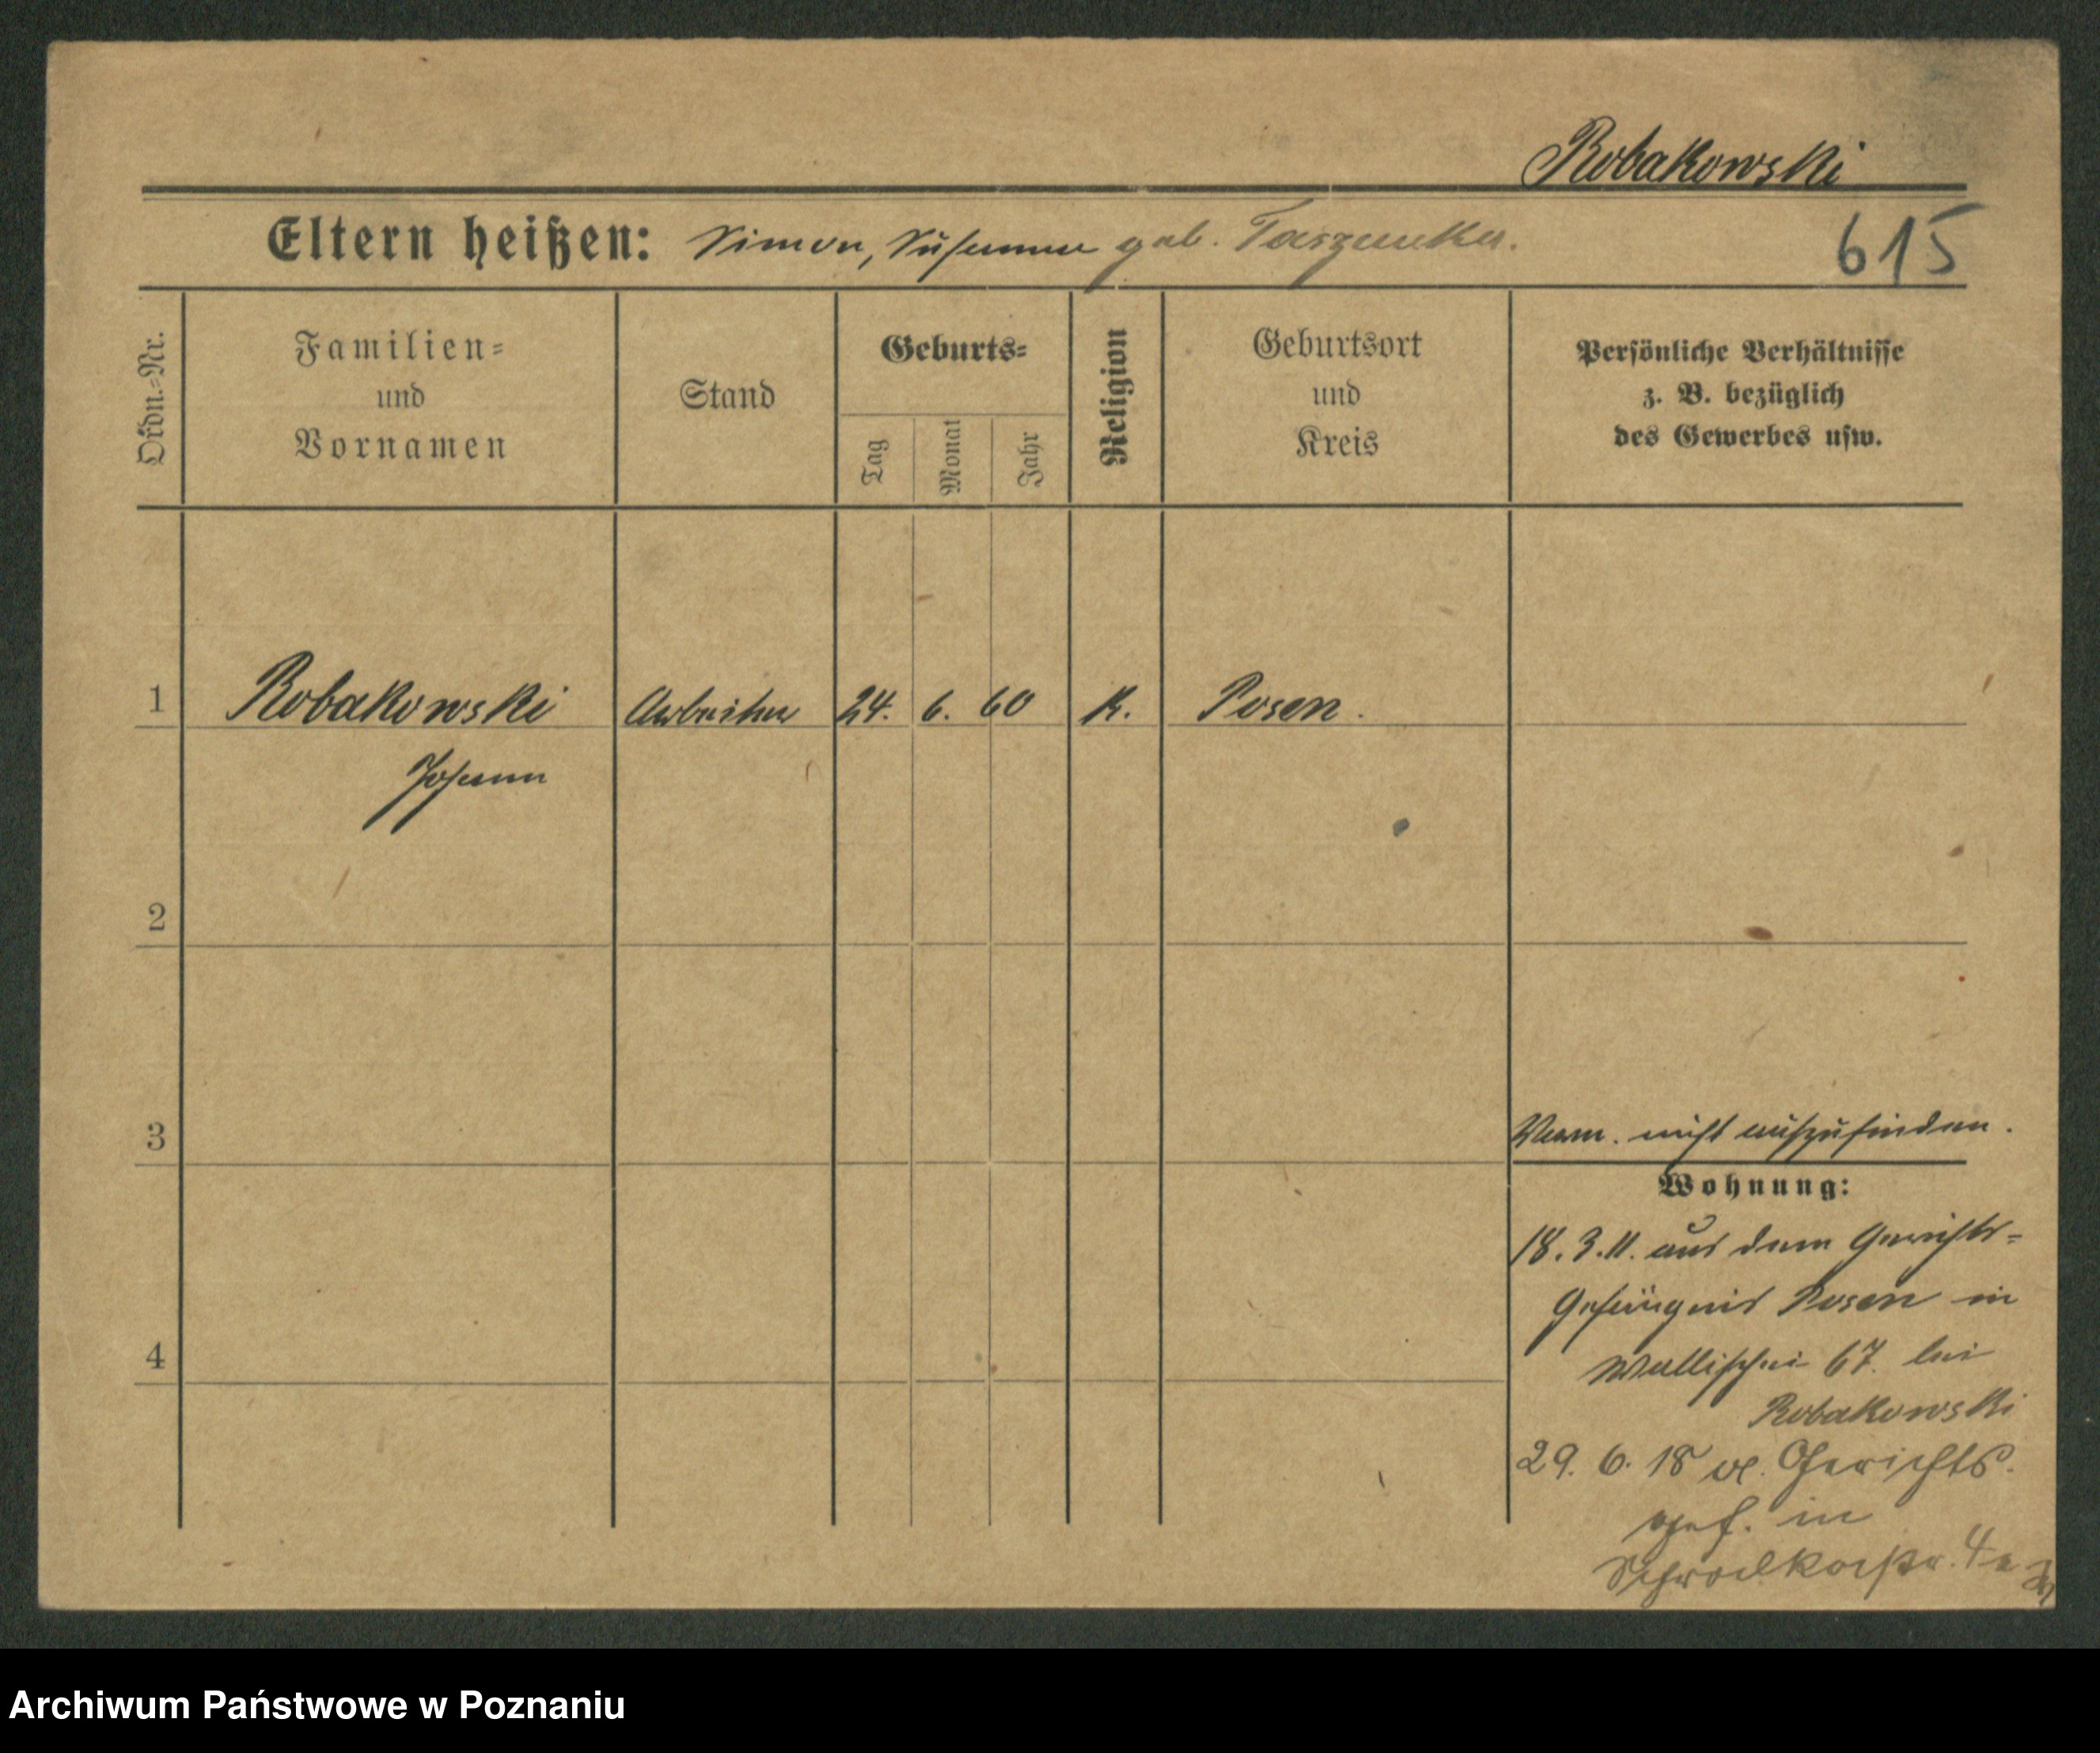 Robakowski
Eltern heißen: Simon, Susanna geb.
615
Ordn.-Nr.
Familien-
und
Vornamen
Stand
Geburts-
Tag
Monat
Jahr
Religion
Geburtsort
und
Kreis
Persönliche Verhältnisse
z. B. bezüglich
des Gewerbes usw.
1 Robakowski Arbeiter 24. 6. 60 K. Posen.
Johann
2
3
Verm. nicht aufzufinden.
Wohnung:
18.3.11. aus dem Gerichts-
Gefängnis Posen in
Wallischei 67. bei
Robakowski
4
29. 6. 18 Gerichts.
gef. in
Schrodkastr. 4a
Archiwum Państwowe w Poznaniu